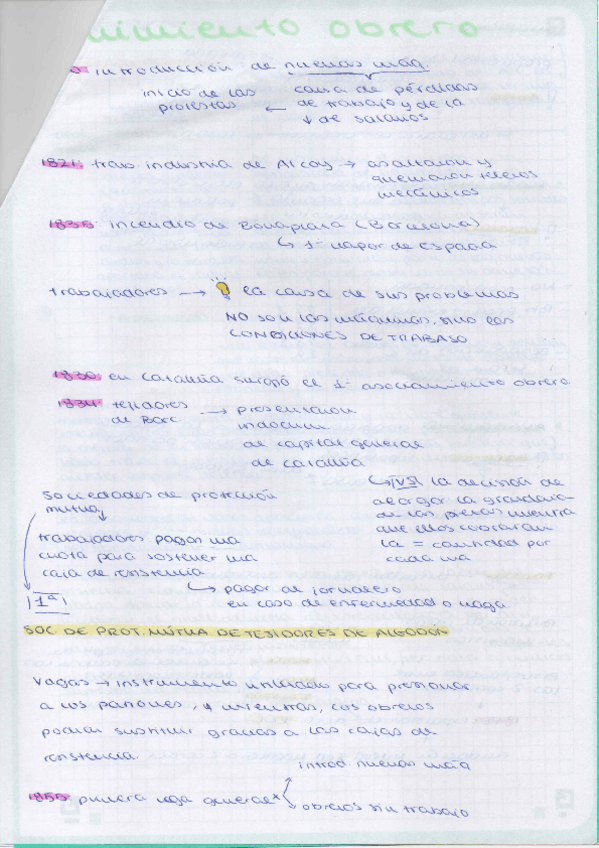 imiento obrero
introducción de nuevas máq.
inicio de las protestas ← causa de pérdidas
de trabajo y de la
↓ de salarios
1821: trab. industria de Alcoy → asaltaron y
quemaron telares
mecánicos
1835: incendio de Bonaplata (Barcelona)
↳ 1er vapor de España
trabajadores → la causa de sus problemas
NO son las máquinas, sino las
CONDICIONES DE TRABAJO
1830 en Cataluña surgió el 1er asociamiento obrero
1834: tejedores
de Barc → presentaron
un docum.
de capital general
de Cataluña
↳ VS! la decisión de
alargar la grandaria
de las piezas mientra
que ellos cobraran
la = cantidad por
cada una
Sociedades de protección
mutua
trabajadores pagan una
cuota para sostener una
caja de resistencia
↳ pagar al jornalero
en caso de enfermedad o vaga.
1ª
SOC DE PROT. MÚTUA DE TEJIDORES DE ALGODÓN
Vagas → instrumento utilizado para presionar
a los patrones, y mientras, los obreros
podían subsistir gracias a las cajas de
resistencia
introd. nuevas máq
1855: primera vaga general
obreros sin trabajo